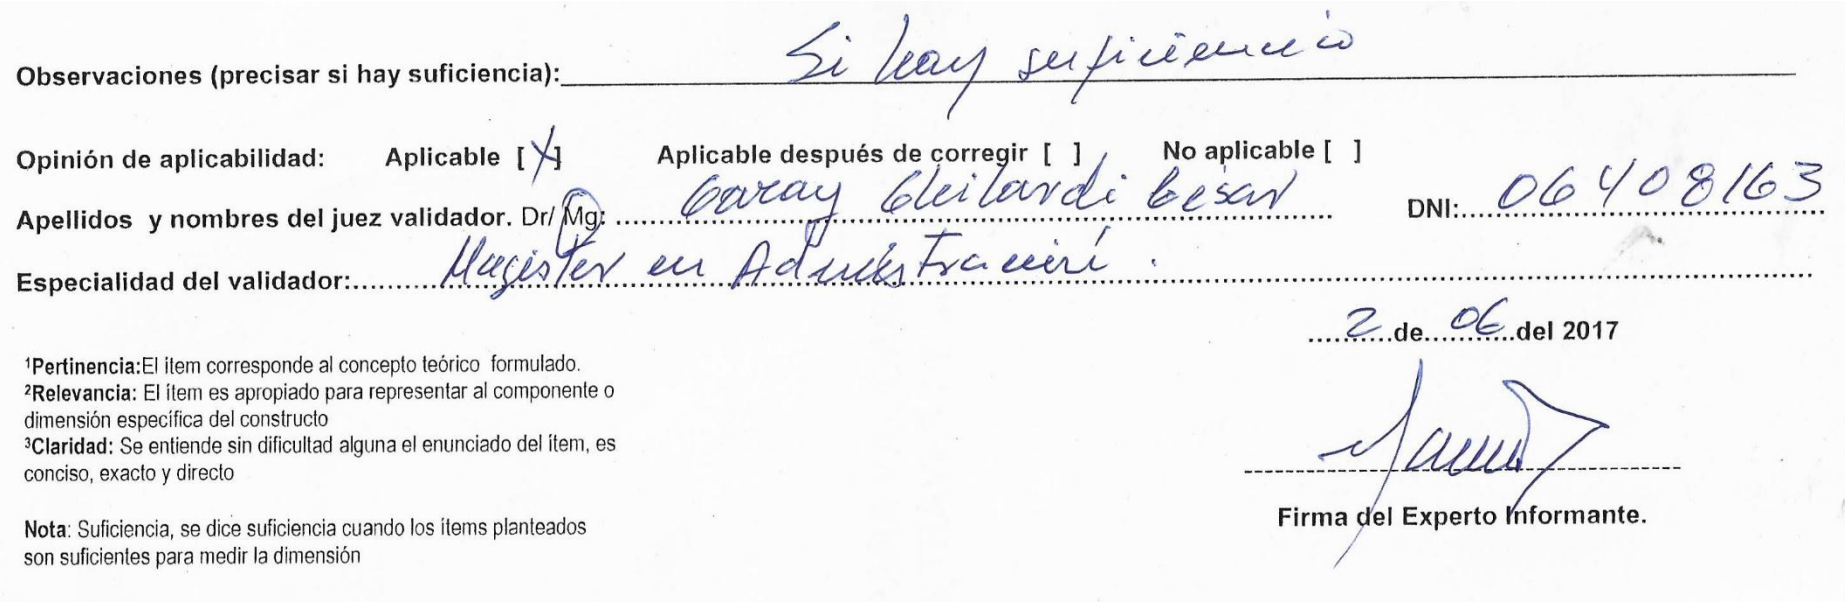 Observaciones (precisar si hay suficiencia): Si hay suficiencia
Opinión de aplicabilidad: Aplicable [X] Aplicable después de corregir [ ] No aplicable [ ]
Apellidos y nombres del juez validador. Dr/ Mg: Garay Ghilardi César DNI: 06408163
Especialidad del validador: Magister en Administración.
2 de 06 del 2017
¹Pertinencia:El ítem corresponde al concepto teórico formulado.
²Relevancia: El ítem es apropiado para representar al componente o
dimensión específica del constructo
³Claridad: Se entiende sin dificultad alguna el enunciado del ítem, es
conciso, exacto y directo
Nota: Suficiencia, se dice suficiencia cuando los ítems planteados
son suficientes para medir la dimensión
Firma del Experto Informante.